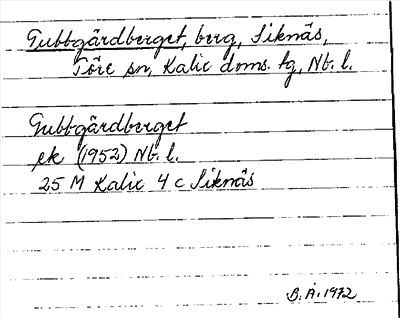 Gubbgårdberget, berg, Siknäs,
Töre sn, Kalix doms. tg, Nb. l.
Gubbgårdberget
ek (1952) Nb. l.
25 M Kalix 4 c Siknäs
B. Å. 1972